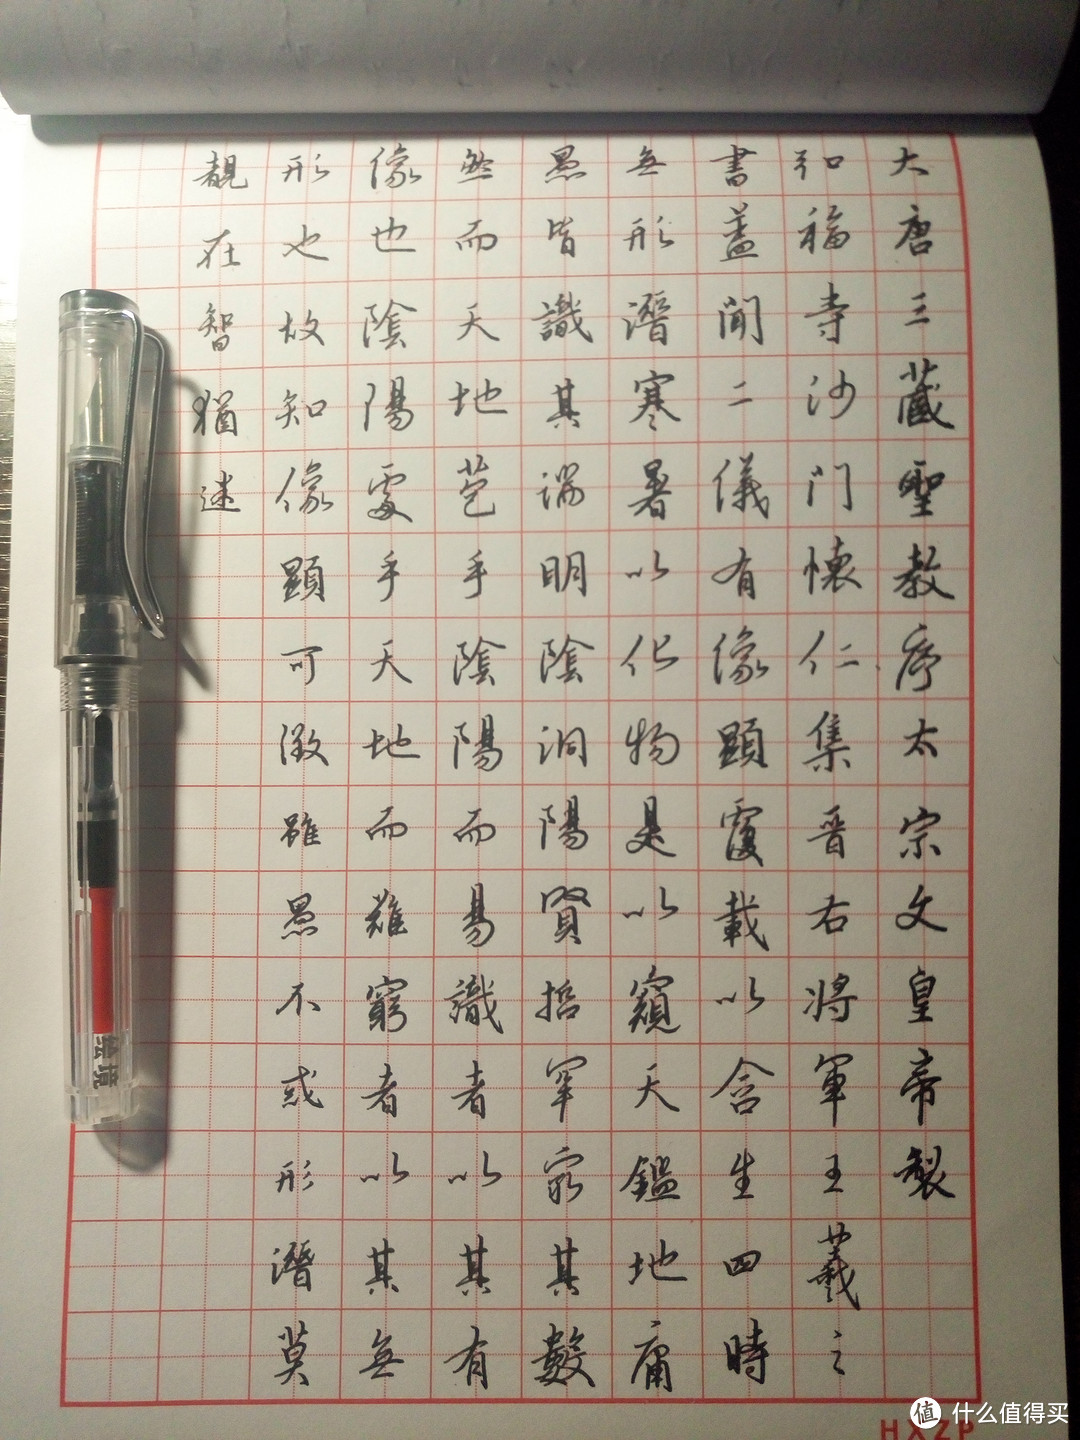 大唐三藏聖教序太宗文皇帝製
弘福寺沙門懷仁集晉右將軍王羲之
書蓋聞二儀有像顯覆載以含生四時
無形潛寒暑以化物是以窺天鑑地庸
愚皆識其端明陰洞陽賢哲罕窮其數
然而天地苞乎陰陽而易識者以其有
像也陰陽處乎天地而難窮者以其無
形也故知像顯可徵雖愚不惑形潛莫
覩在智猶迷
HXZP
值 什么值得买